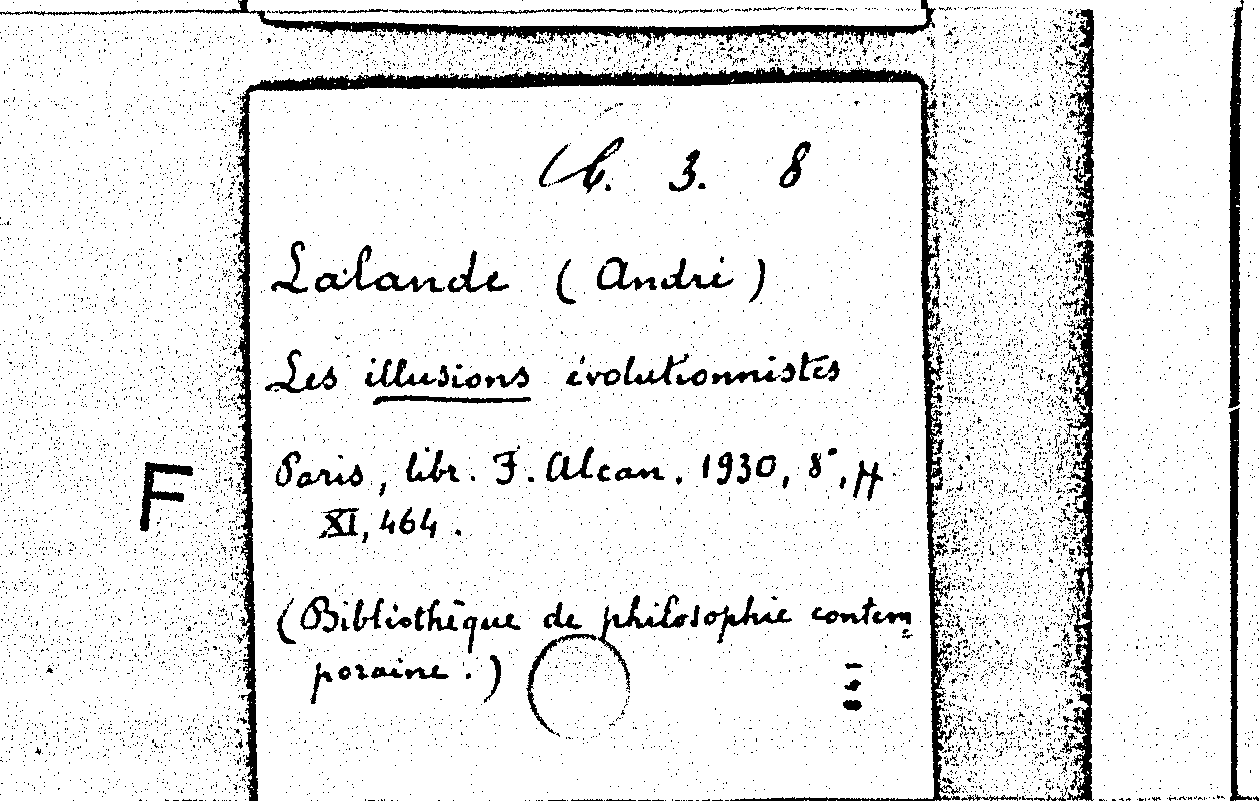 C. 3. 8
Lalande (André)
Les illusions évolutionnistes
F
Paris, libr. F. Alcan. 1930, 8°, pp
XI, 464.
(Bibliothèque de philosophie contem
poraine.)